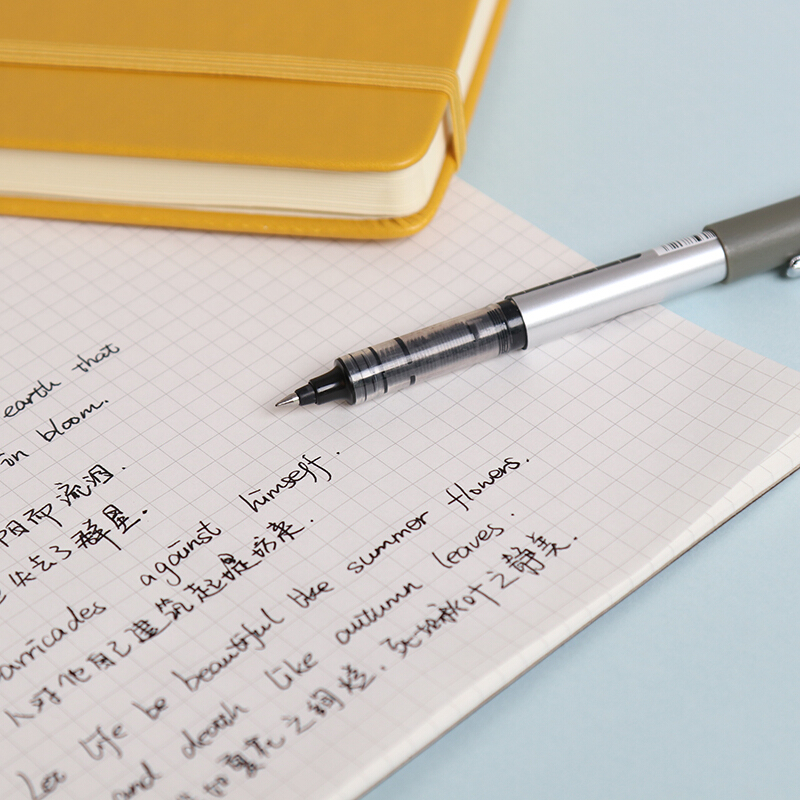 earth that
in bloom.
阳而流泪.
失去了群星.
arricades against himself.
人对他自己建筑起堤防来.
Let life be beautiful like summer flowers.
and death like autumn leaves.
如夏花之绚烂.死如秋叶之静美.